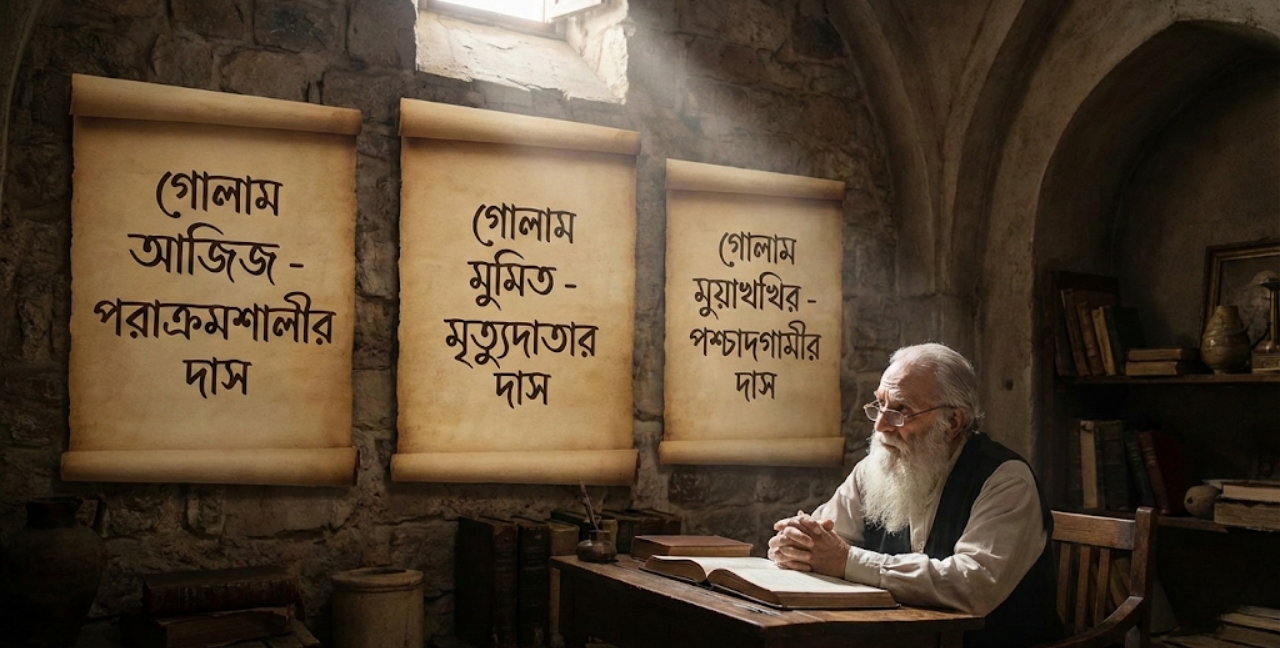 গোলাম
আজিজ -
পরাক্রমশালীর
দাস
গোলাম
মুমিত -
মৃত্যুদাতার
দাস
গোলাম
মুয়াখখির -
পশ্চাদগামীর
দাস